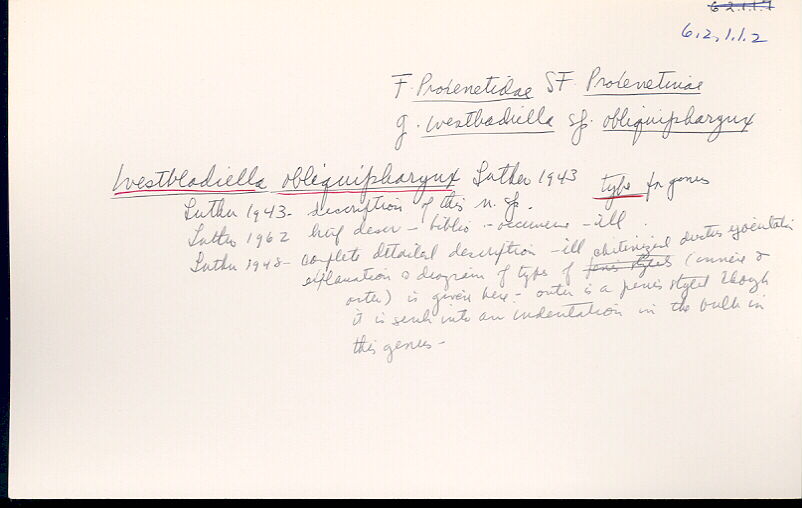 6.2.1.1.1
6.2.1.1.2
F. Proxenetidae SF Proxenetinae
g. Westbladiella sp. obliquipharynx
Westbladiella obliquipharynx Luther 1943 type for genus
Luther 1943- description of this n. sp.
Luther 1962 brief descr - biblio - occurrence - ill.
Luther 1948- complete detailed description - ill chitinized ductus ejaculatorius
explanation & diagram of types of penis stylets (inner &
outer) is given here - outer is a penis stylet though
it is sunk into an indentation in the bulb in
this genus -